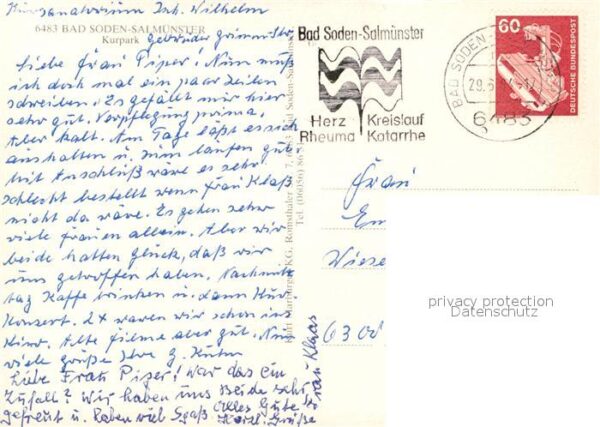 Kursanatorium Joh. Wilhelm
6483 BAD SODEN-SALMÜNSTER
Kurpark
Gebrüder
Liebe Frau Piper! Nun muß
ich doch mal ein paar Zeilen
schreiben. Es gefällt mir hier
sehr gut. Verpflegung prima,
Aber kalt. Am Tage läßt es sich
aushalten u. zum laufen gut
mit Anschluß wäre es sehr
schlecht bestellt wenn Frau Klaas
nicht da wäre. Es gehen sehr
viele Frauen allein. Aber wir
beide hatten Glück, daß wir
uns getroffen haben. Nachmit
tag Kaffe trinken u. dann Kur-
Konzert. 2x waren wir schon im
Kino. Alte Filme aber gut. Nun
viele Grüße Ihre
Liebe Frau Piper! War das ein
Zufall? Wir haben uns Beide sehr
gefreut u. haben viel Spaß. Alles Gute
Herzl. Grüße
Frau Klaas
Tel. (06056)
Bad Soden-Salmünster
Herz Kreislauf
Rheuma Katarrhe
BAD SODEN
6483
60
DEUTSCHE BUNDESPOST
Frau
Em
Wiese
6300
privacy protection
Datenschutz